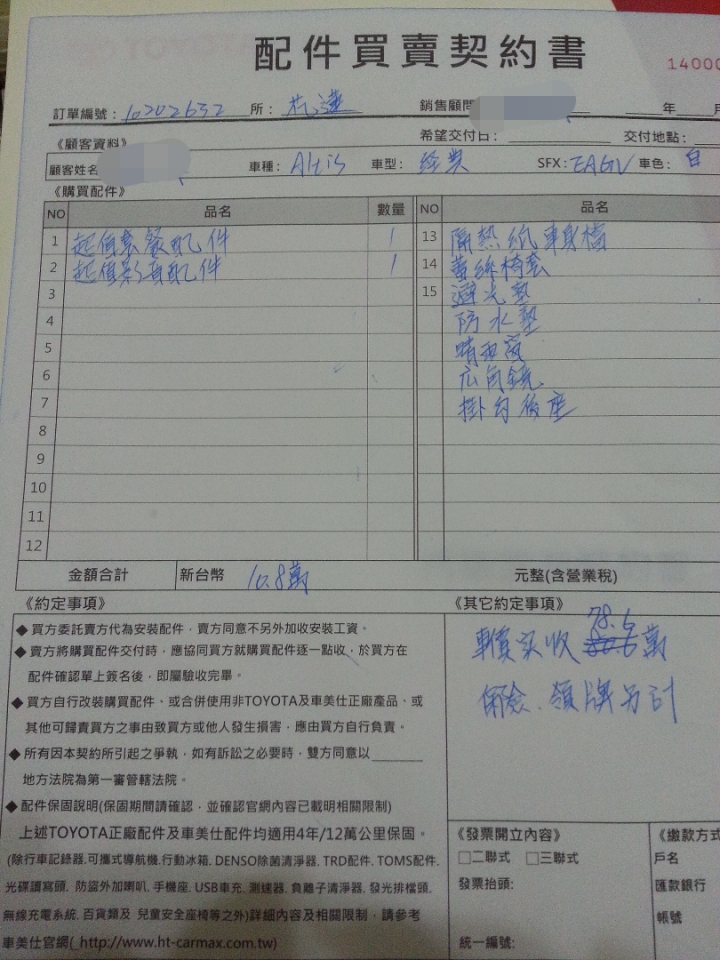 配件買賣契約書
14000
訂單編號: 10202632 所: 銷售顧問 年 月
《顧客資料》 希望交付日: 交付地點:
顧客姓名 車種: Altis 車型: 經典 SFX: EAGV 車色: 白
《購買配件》
NO 品名 數量 NO 品名
1 超值套餐配件 1 13 隔熱紙 車身檔
2 超值影音配件 1 14 蕾絲椅套
3 15 避光墊
4 防水墊
5 晴雨窗
6 広角鏡
7 掛勾後座
8
9
10
11
12
金額合計 新台幣 10.8萬 元整(含營業稅)
《約定事項》 《其它約定事項》
◆ 買方委託賣方代為安裝配件，賣方同意不另外加收安裝工資。
◆ 賣方將購買配件交付時，應協同買方就購買配件逐一點收，於買方在
配件確認單上簽名後，即屬驗收完畢。
◆ 買方自行改裝購買配件，或合併使用非TOYOTA及車美仕正廠產品，或
其他可歸責買方之事由致買方或他人發生損害，應由買方自行負責。
◆ 所有因本契約所引起之爭執，如有訴訟之必要時，雙方同意以
地方法院為第一審管轄法院。
◆ 配件保固說明(保固期間請確認，並確認官網內容已載明相關限制)
上述TOYOTA正廠配件及車美仕配件均適用4年/12萬公里保固。
(除行車記錄器.可攜式導航機.行動冰箱. DENSO除菌清淨器. TRD配件. TOMS配件.
光碟讀寫頭. 防盜外加喇叭. 手機座. USB車充. 測速器. 負離子清淨器. 發光排檔頭.
無線充電系統. 百貨類及 兒童安全座椅等之外)詳細內容及相關限制，請參考
車美仕官網( http://www.ht-carmax.com.tw)
78.6
車價實收 80.6 萬
保險.領牌另計
《發票開立內容》
□二聯式 □三聯式
發票抬頭:
統一編號:
《繳款方式
戶名
匯款銀行
帳號